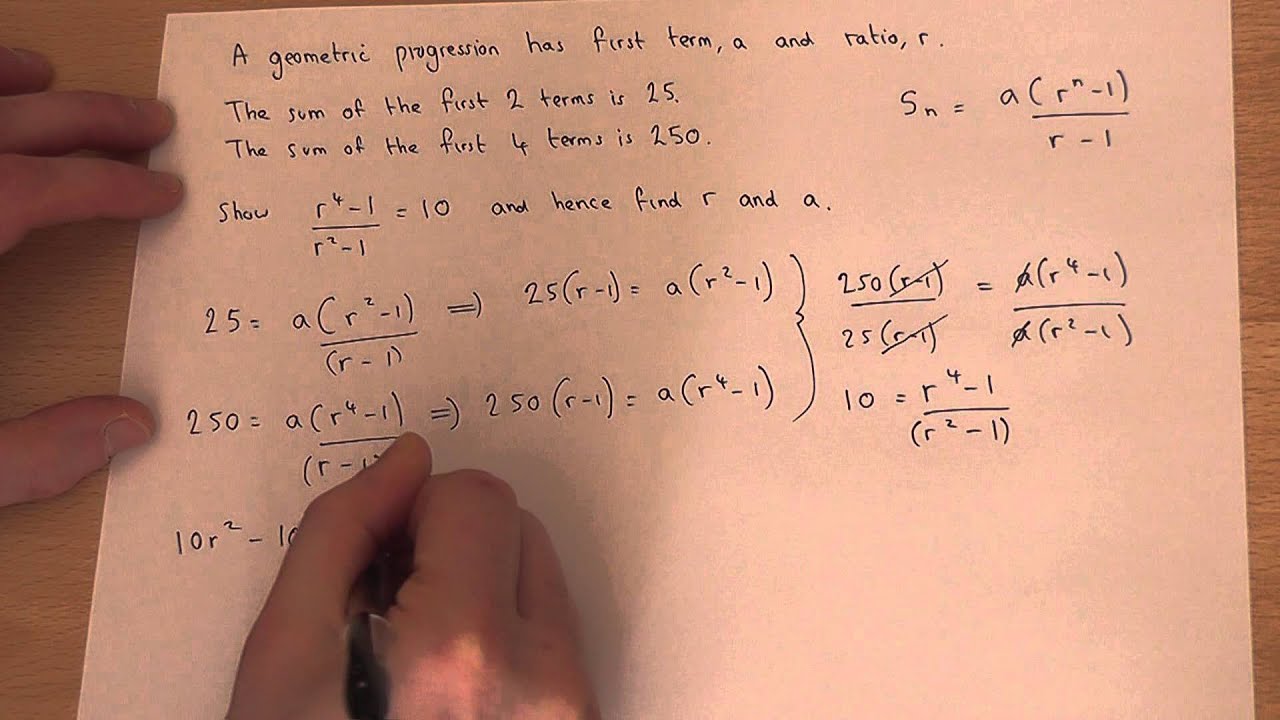 A geometric progression has first term, a and ratio, r.
The sum of the first 2 terms is 25.
The sum of the first 4 terms is 250.
Sₙ = a(rⁿ-1) / r-1
Show r⁴-1 / r²-1 = 10 and hence find r and a.
25 = a(r²-1) / (r-1) ⇒ 25(r-1) = a(r²-1)
250 = a(r⁴-1) / (r-1) ⇒ 250(r-1) = a(r⁴-1)
250(r-1) / 25(r-1) = a(r⁴-1) / a(r²-1)
10 = r⁴-1 / (r²-1)
10r² - 10